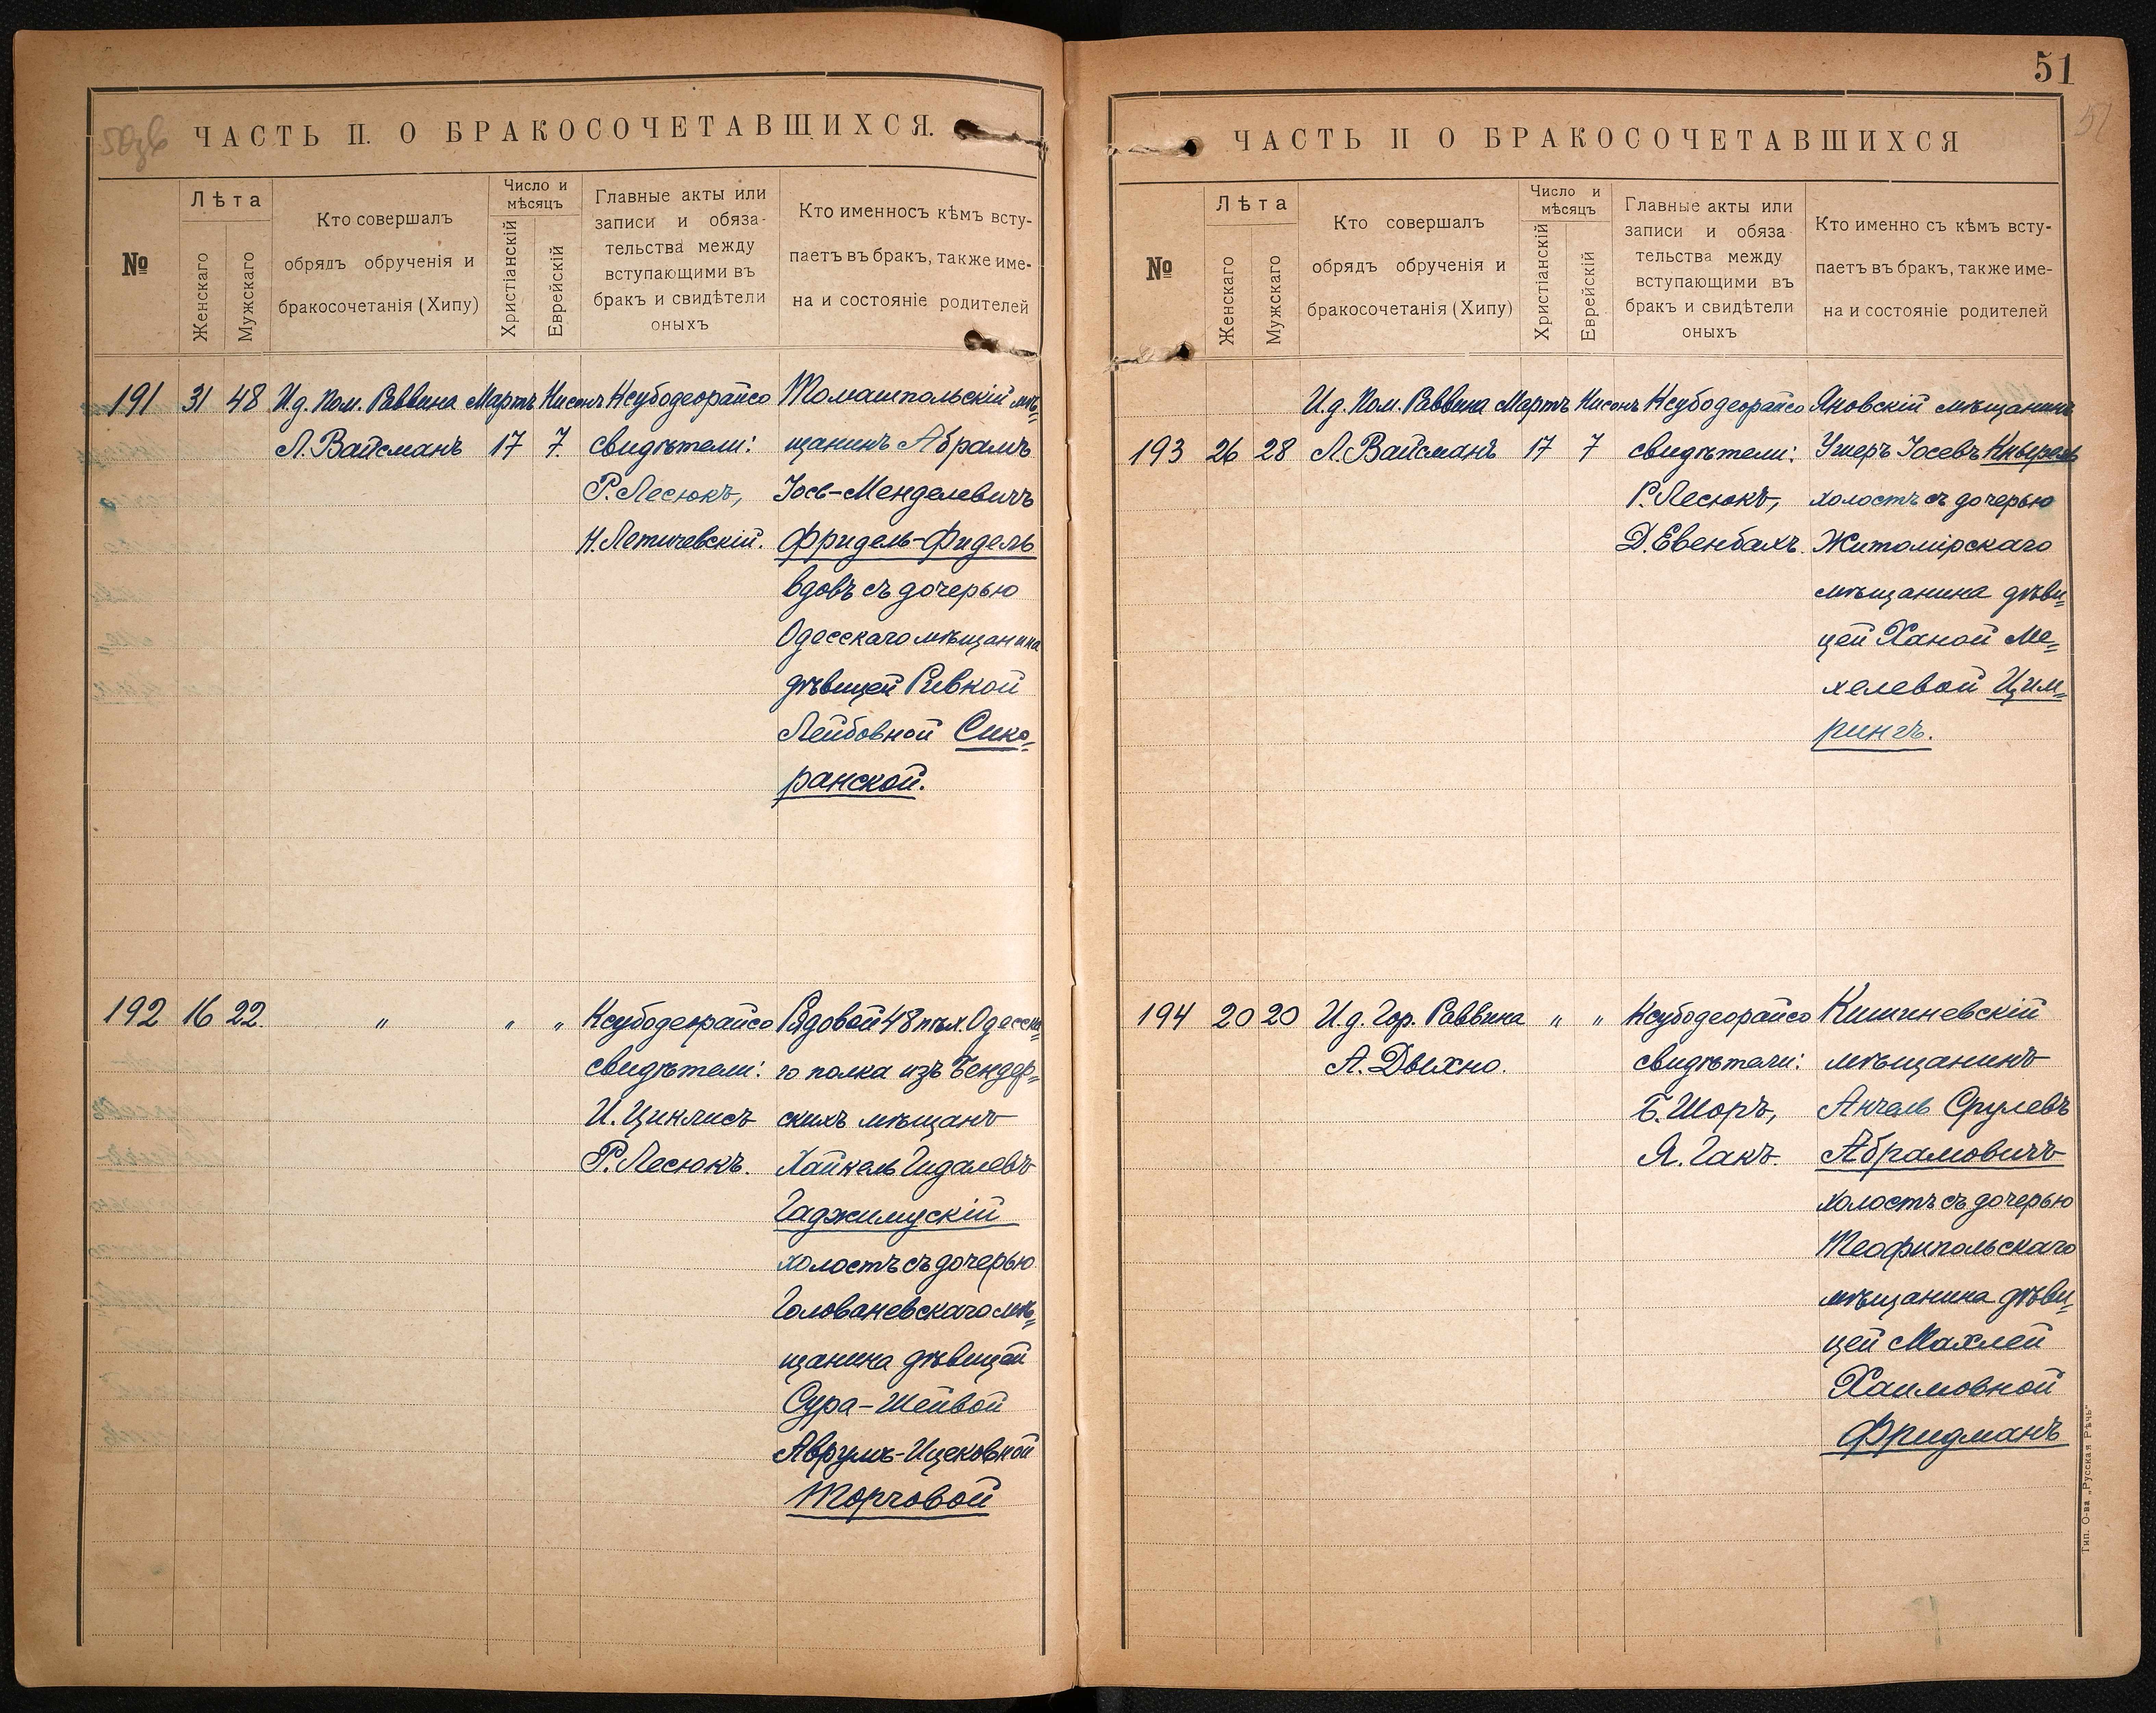 50зв
ЧАСТЬ II. О БРАКОСОЧЕТАВШИХСЯ.
№
Лѣта
Женскаго
Мужскаго
Кто совершалъ
обрядъ обрученія и
бракосочетанія (Хипу)
Число и
мѣсяцъ
Христіанскій
Еврейскій
Главные акты или
записи и обяза-
тельства между
вступающими въ
бракъ и свидѣтели
оныхъ
Кто именносъ кѣмъ всту-
паетъ въ бракъ, также име-
на и состояніе родителей
191 31 48
И.д. Пом. Раввина
Л. Вайсманъ
Мартъ
17
Нисонъ
7
Ксубодеорайсо
свидѣтели:
Р. Лесюкъ,
Н. Летичевскій.
Томашпольскій мѣ=
щанинъ Абрамъ
Іось-Менделевичъ
Фридель-Фидель
вдовъ съ дочерью
Одесскаго мѣщанина
дѣвицей Ривкой
Лейбовной Сико=
ранской.
192 16 22
" " "
Ксубодеорайсо
свидѣтели:
И. Цинклисъ
Р. Лесюкъ.
Рядовой 48 пѣх. Одесска=
го полка изъ Бендер=
скихъ мѣщанъ
Хайкель Гидалевъ
Гаджилускій
холостъ съ дочерью
Голованевскаго мѣ=
щанина дѣвицей
Сура-Шейвой
Аврумъ-Ицековной
Торговой
51
51
ЧАСТЬ II О БРАКОСОЧЕТАВШИХСЯ
№
Лѣта
Женскаго
Мужскаго
Кто совершалъ
обрядъ обрученія и
бракосочетанія (Хипу)
Число и
мѣсяцъ
Христіанскій
Еврейскій
Главные акты или
записи и обяза
тельства между
вступающими въ
бракъ и свидѣтели
оныхъ
Кто именно съ кѣмъ всту-
паетъ въ бракъ, также име-
на и состояніе родителей
193 26 28
И.д. Пом. Раввина
Л. Вайсманъ
Мартъ
17
Нисонъ
7
Ксубодеорайсо
свидѣтели:
Р. Лесюкъ,
Д. Евенбахъ.
Яновскій мѣщанинъ
Ушеръ Іосевъ
холостъ съ дочерью
Житомірскаго
мѣщанина дѣви=
цей Ханой Ме=
хелевой Цим=
рингъ.
194 20 20
И.д. Гор. Раввина
А. Дыхно.
" "
Ксубодеорайсо
свидѣтели:
Б. Шоръ,
Я. Гакъ.
Кишиневскій
мѣщанинъ
Анчель Срулевъ
Абрамовичъ
холостъ съ дочерью
Теофипольскаго
мѣщанина дѣви=
цей Махлей
Хаимовной
Фридманъ
Тип. О-ва „Русская Рѣчь"